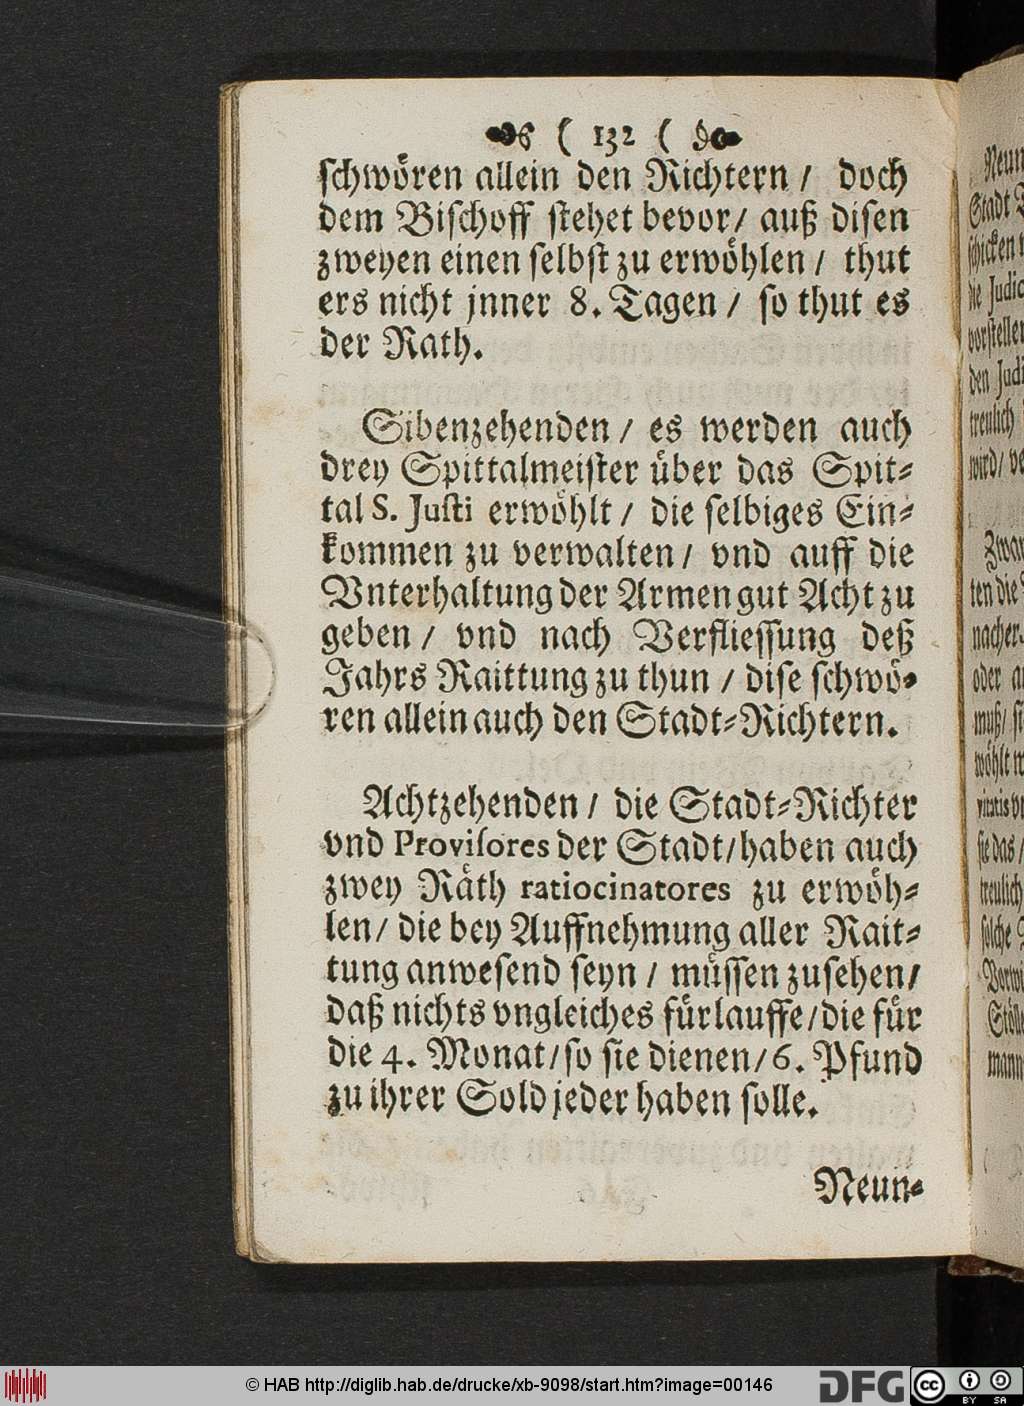 ( 132 (
schwören allein den Richtern / doch
dem Bischoff stehet bevor / auß disen
zweyen einen selbst zu erwöhlen / thut
ers nicht jnner 8. Tagen / so thut es
der Rath.
Sibenzehenden / es werden auch
drey Spittalmeister über das Spit⸗
tal S. Justi erwöhlt / die selbiges Ein⸗
kommen zu verwalten / vnd auff die
Vnterhaltung der Armen gut Acht zu
geben / vnd nach Verfliessung deß
Jahrs Raittung zu thun / dise schwö⸗
ren allein auch den Stadt⸗Richtern.
Achtzehenden / die Stadt⸗Richter
vnd Provisores der Stadt / haben auch
zwey Räth ratiocinatores zu erwöh⸗
len / die bey Auffnehmung aller Rait⸗
tung anwesend seyn / müssen zusehen /
daß nichts vngleiches fürlauffe / die für
die 4. Monat / so sie dienen / 6. Pfund
zu ihrer Sold jeder haben solle.
Neun⸗
Neun
Stadt
schicken
die Judic
vorsteller
den Judi
treulich
wird /
Zwar
ten die
nacher
oder
muß /
wöhlt
sie das /
treulich
solche
mann
© HAB http://diglib.hab.de/drucke/xb-9098/start.htm?image=00146
DFG
cc
BY SA